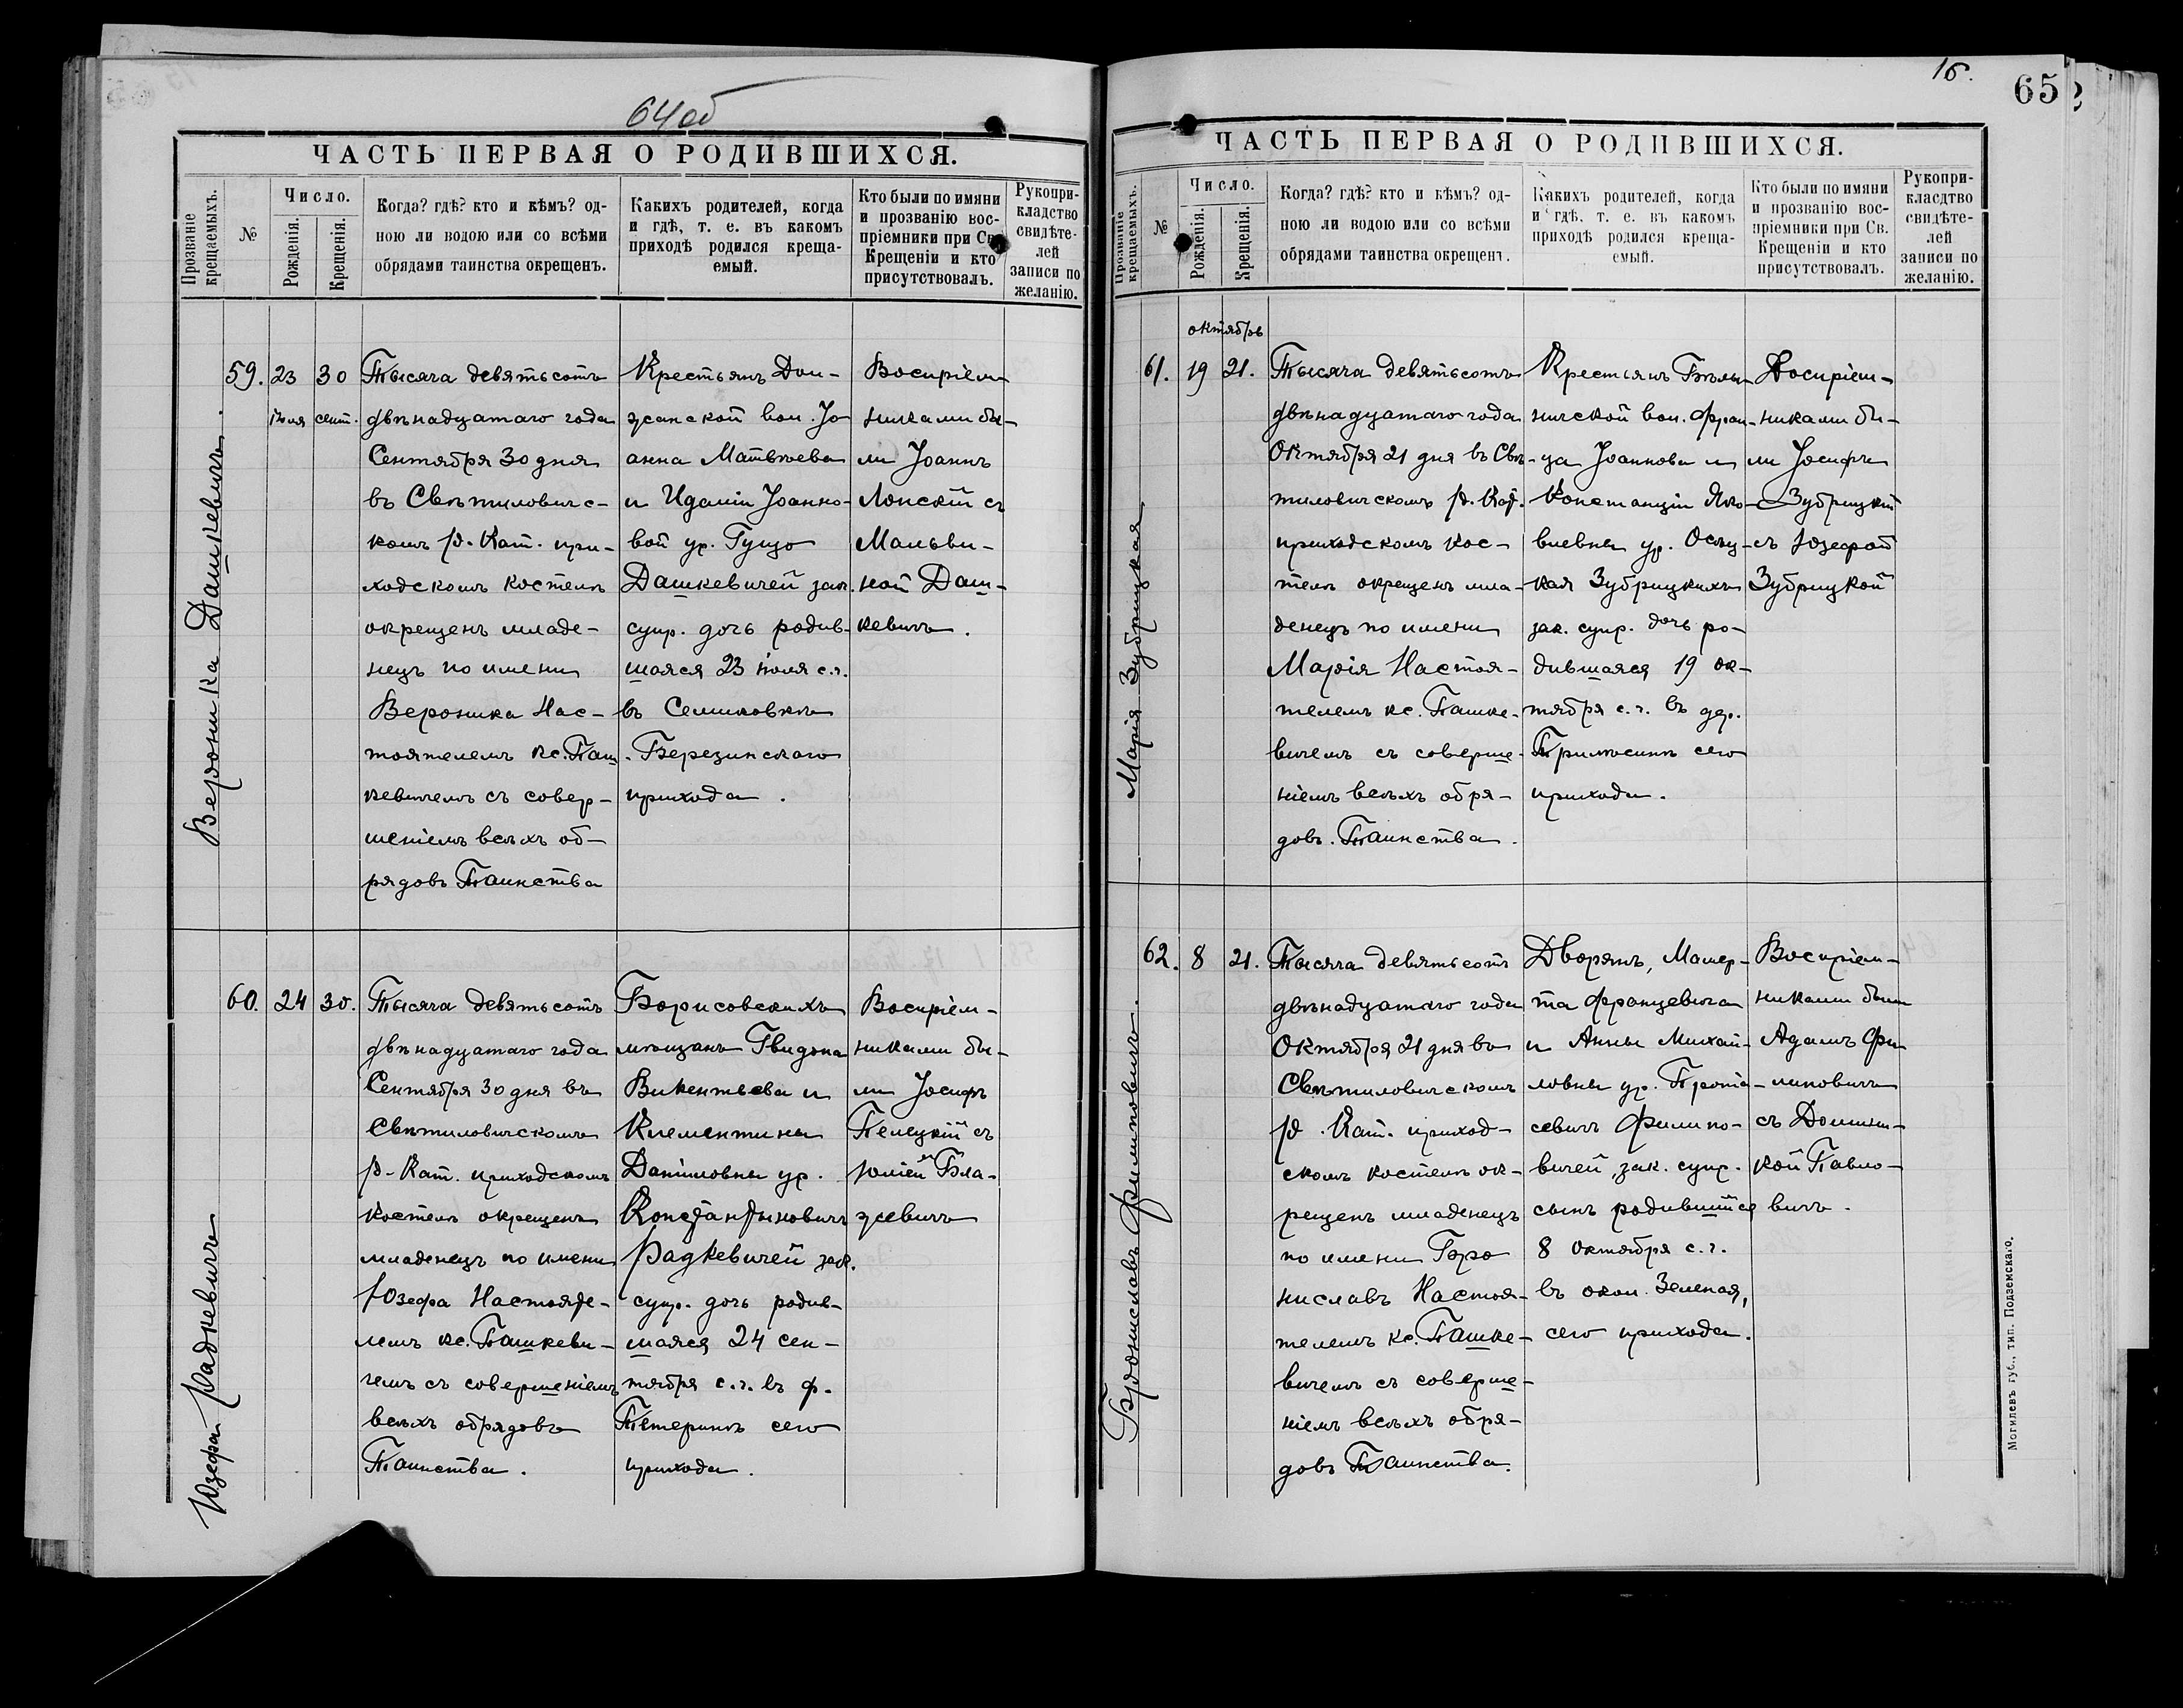 64об
ЧАСТЬ ПЕРВАЯ О РОДИВШИХСЯ.
Прозваніе крещаемыхъ.
№
Число.
Рожденія.
Крещенія.
Когда? гдѣ? кто и кѣмъ? од-
ною ли водою или со всѣми
обрядами таинства окрещенъ.
Какихъ родителей, когда
и гдѣ, т. е. въ какомъ
приходѣ родился креща-
емый.
Кто были по имяни
и прозванію вос-
пріемники при Св.
Крещеніи и кто
присутствовалъ.
Рукопри-
кладство
свидѣте-
лей
записи по
желанію.
Вероника Дашкевичъ.
59.
23
іюля
30
сент.
Тысяча девятьсотъ
двѣнадцатаго года
Сентября 30 дня
въ Свѣтиловичс-
комъ р.-Кат. при-
ходскомъ костелѣ
окрещенъ младе-
нецъ по имени
Вероника Нас-
тоятелемъ кс. Паш-
кевичемъ съ совер-
шеніемъ всѣхъ об-
рядовъ Таинства
Крестьянъ Дом-
жанской вол. Іо
анна Матвѣева
и Идаліи Іоанно-
вой ур. Гущо
Дашкевичей зак.
супр. дочь родив-
шаяся 23 іюля с.г.
въ Селиковкѣ
Березинскаго
прихода.
Воспріем-
никами бы-
ли Іоаннъ
Лонскій съ
Мальви-
ной Даш-
кевичъ.
Юзефа Радкевичъ
60.
24
30.
Тысяча девятьсотъ
двѣнадцатаго года
Сентября 30 дня въ
Свѣтиловичскомъ
р.-Кат. приходскомъ
костелѣ окрещенъ
младенецъ по имени
Юзефа Настояте-
лемъ кс. Пашкеви-
чемъ съ совершеніемъ
всѣхъ обрядовъ
Таинства.
Борисовскихъ
мѣщанъ Гвидона
Викентьева и
Клементины
Даніиловны ур.
Константиновичъ
Радкевичей зак.
супр. дочь родив-
шаяся 24 сен-
тября с.г. въ ф.
Тетеринѣ сего
прихода.
Воспріем-
никами бы-
ли Іосифъ
Пелецкій съ
Юліей Бла-
жевичъ
16.
65
ЧАСТЬ ПЕРВАЯ О РОДИВШИХСЯ.
Прозваніе крещаемыхъ.
№
Число.
Рожденія.
Крещенія.
Когда? гдѣ? кто и кѣмъ? од-
ною ли водою или со всѣми
обрядами таинства окрещенъ.
Какихъ родителей, когда
и гдѣ. т. е. въ какомъ
приходѣ родился креща-
емый.
Кто были по имяни
и прозванію вос-
пріемники при Св.
Крещеніи и кто
присутствовалъ.
Рукопри-
класдтво
свидѣте-
лей
записи по
желанію.
Марія Зубрицкая
октябрь
61.
19
21.
Тысяча девятьсотъ
двѣнадцатаго года
Октября 21 дня въ Свѣ-
тиловичскомъ р. Кат.
приходскомъ кос-
телѣ окрещенъ мла-
денецъ по имени
Марія Настоя-
телемъ кс. Пашке-
вичемъ съ соверше-
ніемъ всѣхъ обря-
довъ. Таинства.
Крестьянъ Бѣлы-
ничской вол. Фран-
ца Іоаннова и
Констанціи Яко-
влевны ур.
Зубрицкихъ
зак. супр. дочь ро-
дившаяся 19 ок-
тября с.г. въ дер.
сего
прихода.
Воспріем-
никами бы-
ли Іосифъ
Зубрицкій
съ Юзефой
Зубрицкой
Брониславъ Филиповичъ.
62.
8
21.
Тысяча девятьсотъ
двѣнадцатаго года
Октября 21 дня въ
Свѣтиловичскомъ
р. Кат. приход-
скомъ костелѣ ок-
рещенъ младенецъ
по имени Бро
ниславъ Настоя-
телемъ кс. Пашке-
вичемъ съ соверше-
ніемъ всѣхъ обря-
довъ Таинства.
Дворянъ, Мамер-
та Францевича
и Анны Михай-
ловны ур. Прота-
севичъ Филипо-
вичей, зак. супр.
сынъ родившійся
8 октября с.г.
въ окол. Зеленая,
сего прихода.
Воспріем-
никами были
Адамъ Фи-
липовичъ
съ Домини-
кой Павло-
вичъ.
Могилевъ губ., тип. Подземскаго.